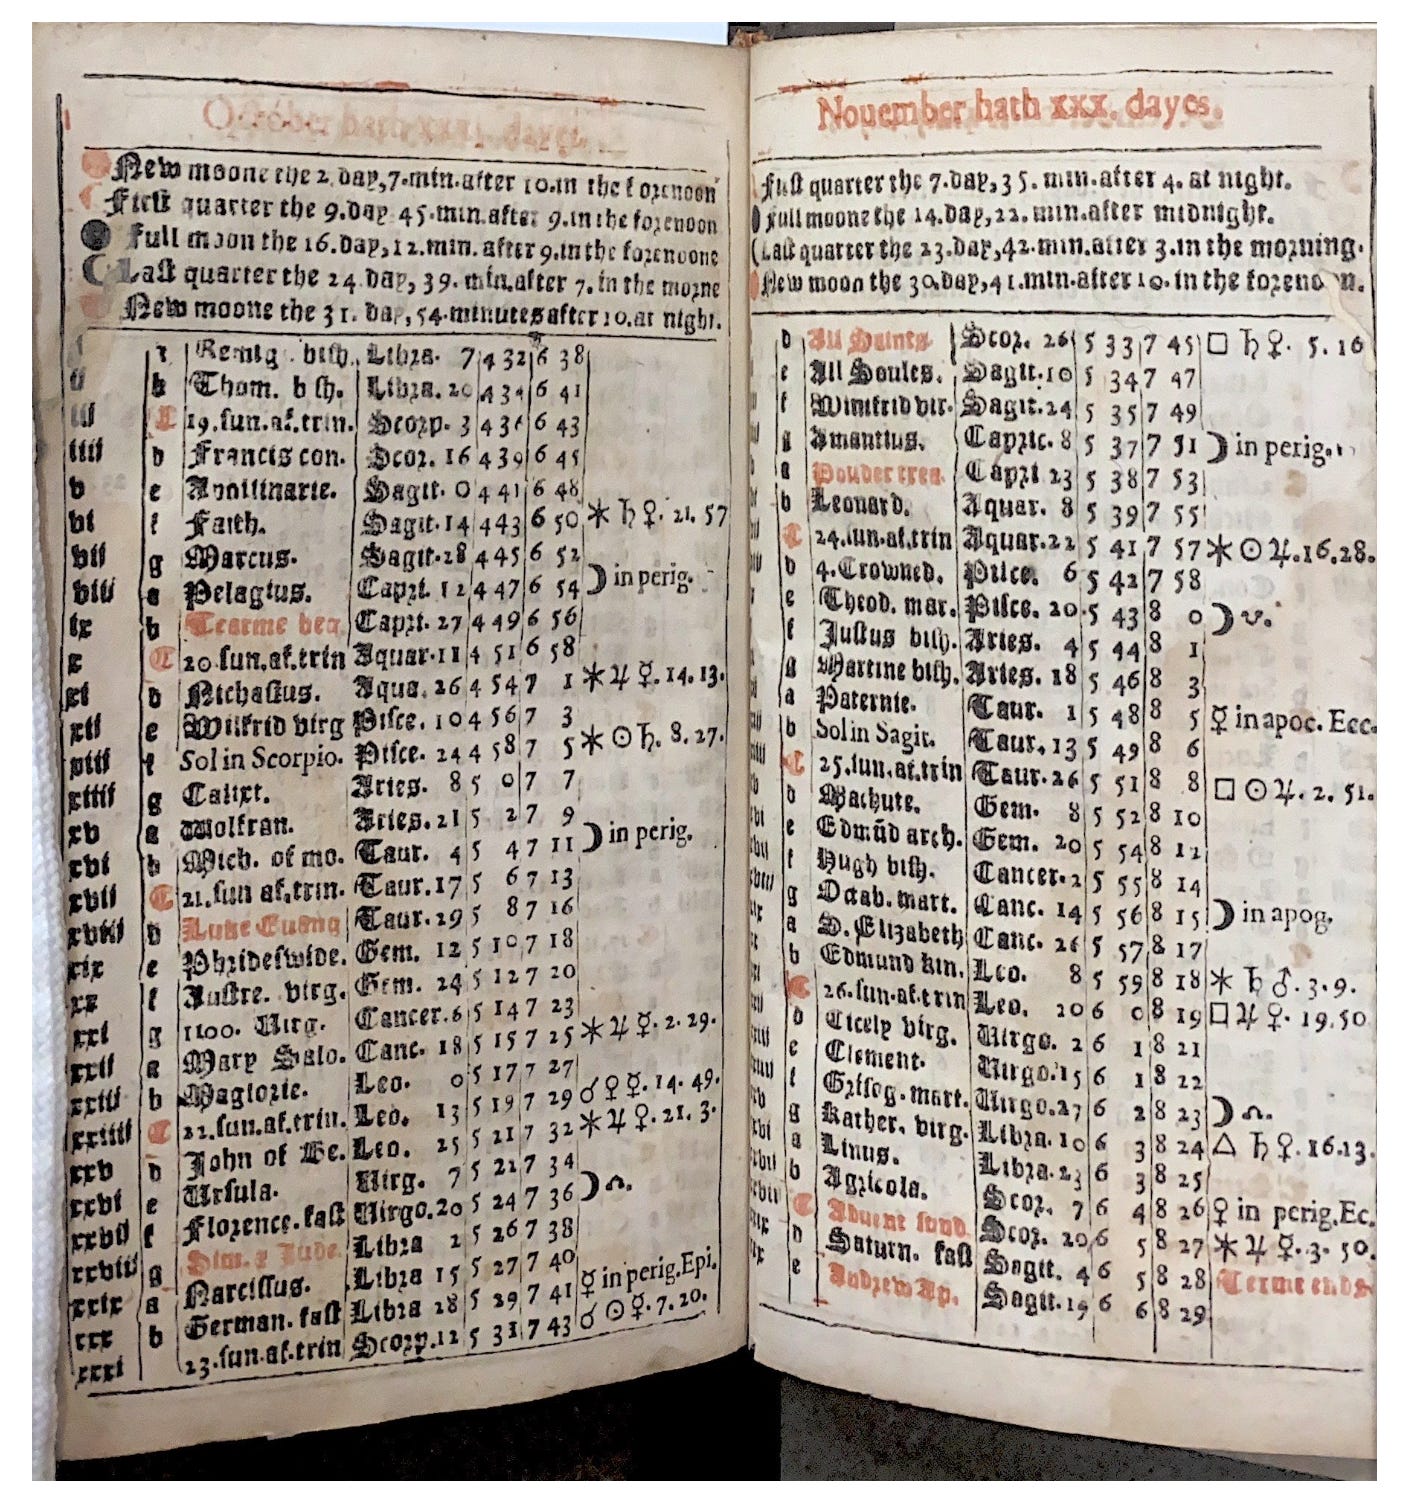 October hath xxxi. dayes.
New moone the 2. day, 7. min. after 10. in the forenoon
First quarter the 9. day 45. min. after 9. in the forenoon
Full moon the 16. day, 12. min. after 9. in the forenoone
Last quarter the 24 day, 39. min. after 7. in the morne
New moone the 31. day, 54. minutes after 10. at night.
Remig. bish. Libra. 7 4 32 6 38
ii b Thom. bish. Libra. 20 4 34 6 41
iii C 19. sun. af. trin. Scorp. 3 4 36 6 43
iiii d Francis con. Scor. 16 4 39 6 45
v e Apollinarie. Sagit. 0 4 41 6 48
vi f Faith. Sagit. 14 4 43 6 50 ⚹ ♄ ♀. 21. 57
vii g Marcus. Sagit. 28 4 45 6 52
viii a Pelagius. Capri. 12 4 47 6 54 ☽ in perig.
ix b Tearme beg. Capri. 27 4 49 6 56
x C 20 sun. af. trin Aquar. 11 4 51 6 58
xi d Nichasius. Aqua. 26 4 54 7 1 ⚹ ♃ ☿. 14. 13.
xii e Wilfrid virg Pisce. 10 4 56 7 3
xiii f Sol in Scorpio. Pisce. 24 4 58 7 5 ⚹ ☉ ♄. 8. 27.
xiiii g Calixt. Aries. 8 5 0 7 7
xv a Wolfran. Aries. 21 5 2 7 9
xvi b Mich. of mo. Taur. 4 5 4 7 11 ☽ in perig.
xvii C 21. sun af. trin. Taur. 17 5 6 7 13
xviii d Luke Euang Taur. 29 5 8 7 16
xix e Phrideswide. Gem. 12 5 10 7 18
xx f Austre. virg. Gem. 24 5 12 7 20
xxi g 1100. Virg. Cancer. 6 5 14 7 23
xxii a Mary Salo. Canc. 18 5 15 7 25 ⚹ ♃ ☿. 2. 29.
xxiii b Maglorie. Leo. 0 5 17 7 27
xxiiii C 22. sun. af. trin. Leo. 13 5 19 7 29 ☌ ♀ ☿. 14. 49.
xxv d John of Be. Leo. 25 5 21 7 32 ⚹ ♃ ♀. 21. 3.
xxvi e Ursula. Virg. 7 5 22 7 34
xxvii f Florence. fast Virgo. 20 5 24 7 36 ☽ ☊.
xxviii g Sim. & Jude. Libra 2 5 26 7 38
xxix a Narcissus. Libra 15 5 27 7 40
xxx b German. fast Libra 28 5 29 7 41 ☿ in perig. Epi.
xxxi 23. sun. af. trin Scorp. 12 5 31 7 43 ☌ ☉ ☿. 7. 20.
Nouember hath xxx. dayes.
First quarter the 7. day, 35. min. after 4. at night.
Full moone the 14. day, 22. min. after midnight.
Last quarter the 23. day, 42. min. after 3. in the morning.
New moon the 30. day, 41. min. after 10. in the forenoon.
d All Saints. Scor. 26 5 33 7 45 □ ♄ ♀. 5. 16
e All Soules. Sagit. 10 5 34 7 47
f Winifrid vir. Sagit. 24 5 35 7 49
g Amantius. Capric. 8 5 37 7 51 ☽ in perig.
a Pouder trea. Capri 23 5 38 7 53
b Leonard. Aquar. 8 5 39 7 55
C 24. sun. af. trin Aquar. 22 5 41 7 57 ⚹ ☉ ♃. 16. 28.
d 4. Crowned. Pisce. 6 5 42 7 58
e Theod. mar. Pisce. 20 5 43 8 0 ☽ ☋.
f Justus bish. Aries. 4 5 44 8 1
g Martine bish. Aries. 18 5 46 8 3
a Paternie. Taur. 1 5 48 8 5 ☿ in apoc. Ecc.
b Sol in Sagit. Taur. 13 5 49 8 6
C 25. sun. af. trin Taur. 26 5 51 8 8 □ ☉ ♃. 2. 51.
d Machute. Gem. 8 5 52 8 10
e Edmũd arch. Gem. 20 5 54 8 12
f Hugh bish. Cancer. 2 5 55 8 14
g Octab. mart. Canc. 14 5 56 8 15 ☽ in apog.
a S. Elizabeth Canc. 26 5 57 8 17
b Edmund kin. Leo. 8 5 59 8 18 ⚹ ♄ ♂. 3. 9.
C 26. sun. af. trin Leo. 20 6 0 8 19 □ ♃ ♀. 19. 50
d Cicely virg. Virgo. 2 6 1 8 21
e Clement. Virgo. 15 6 1 8 22
f Grisog. mart. Virgo. 27 6 2 8 23 ☽ ☊.
g Kather. virg. Libra. 10 6 3 8 24 △ ♄ ♀. 16. 13.
a Linus. Libra. 23 6 3 8 25
b Agricola. Scor. 7 6 4 8 26 ♀ in perig. Ec.
C Aduent sund. Scor. 20 6 5 8 27 ⚹ ♃ ♀. 3. 50.
d Saturn. fast Sagit. 4 6 5 8 28 Terme ends
e Andrew Ap. Sagit. 19 6 6 8 29